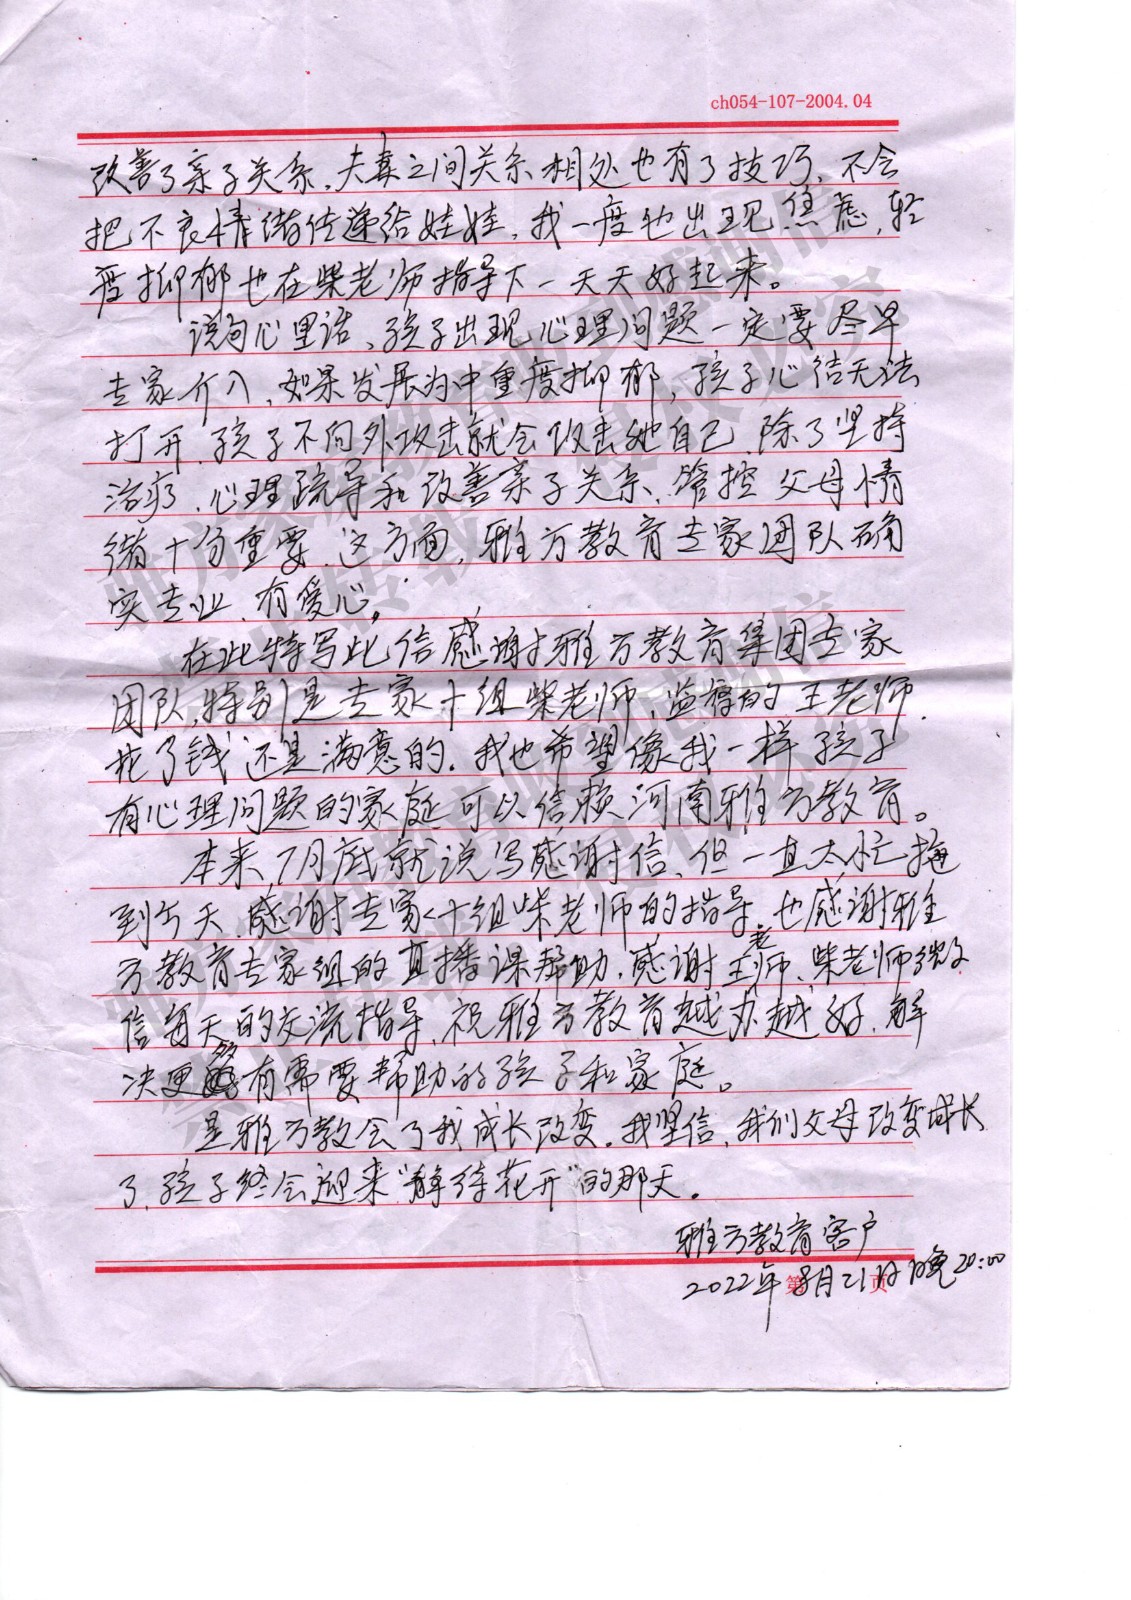 ch054-107-2004.04
改善了亲子关系，夫妻之间关系相处也有了技巧，不会
把不良情绪传递给娃娃，我一度也出现焦虑，轻
度抑郁也在柴老师指导下一天天好起来。
说句心里话、孩子出现心理问题一定要尽早
专家介入，如果发展为中重度抑郁，孩子心结无法
打开，孩子不向外攻击就会攻击她自己，除了坚持
治疗、心理疏导和改善亲子关系、管控父母情
绪十分重要，这方面，雅方教育专家团队确
实专业、有爱心。
在此特写此信感谢雅方教育集团专家
团队，特别是专家十组柴老师，监督的王老师，
花了钱还是满意的，我也希望像我一样孩子
有心理问题的家庭可以信赖河南雅方教育。
本来，7月底就说写感谢信，但一直太忙拖
到今天，感谢专家十组柴老师的指导，也感谢雅
方教育专家组的直播课帮助，感谢王老师、柴老师微
信每天的交流指导，祝雅方教育越办越好，解
决更多有需要帮助的孩子和家庭。
是雅方教会了我成长改变，我坚信，我们父母改变成长
了，孩子终会迎来“静待花开”的那天。
雅方教育客户
2022年8月21日晚20:00
第 页